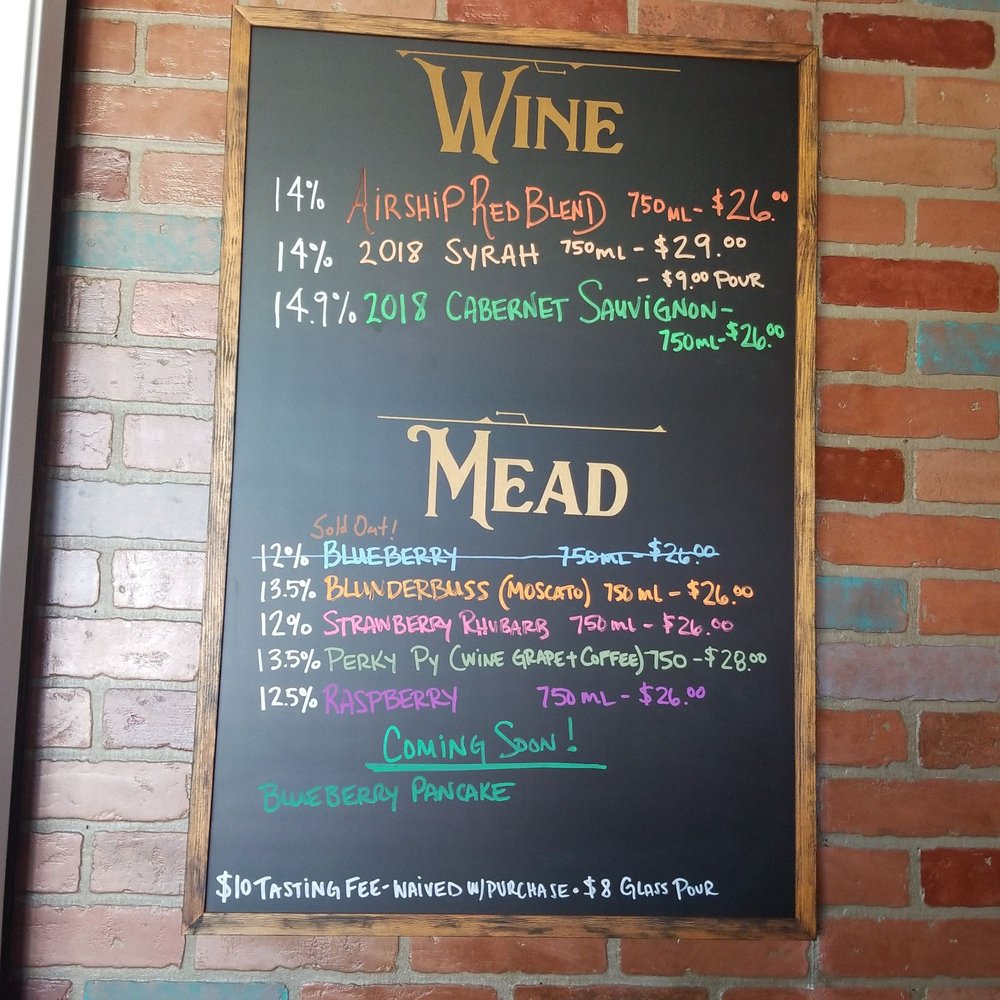 WINE
14% AIRSHIP RED BLEND 750ML - $26.00
14% 2018 SYRAH 750ML - $29.00
- $9.00 POUR
14.9% 2018 CABERNET SAUVIGNON -
750ML - $26.00
MEAD
Sold Out!
12% BLUEBERRY 750ML - $26.00
13.5% BLUNDERBUSS (MOSCATO) 750ML - $26.00
12% STRAWBERRY RHUBARB 750ML - $26.00
13.5% PERKY PY (WINE GRAPE + COFFEE) 750 - $28.00
12.5% RASPBERRY 750ML - $26.00
COMING SOON!
BLUEBERRY PANCAKE
$10 TASTING FEE - WAIVED W/PURCHASE • $8 GLASS POUR